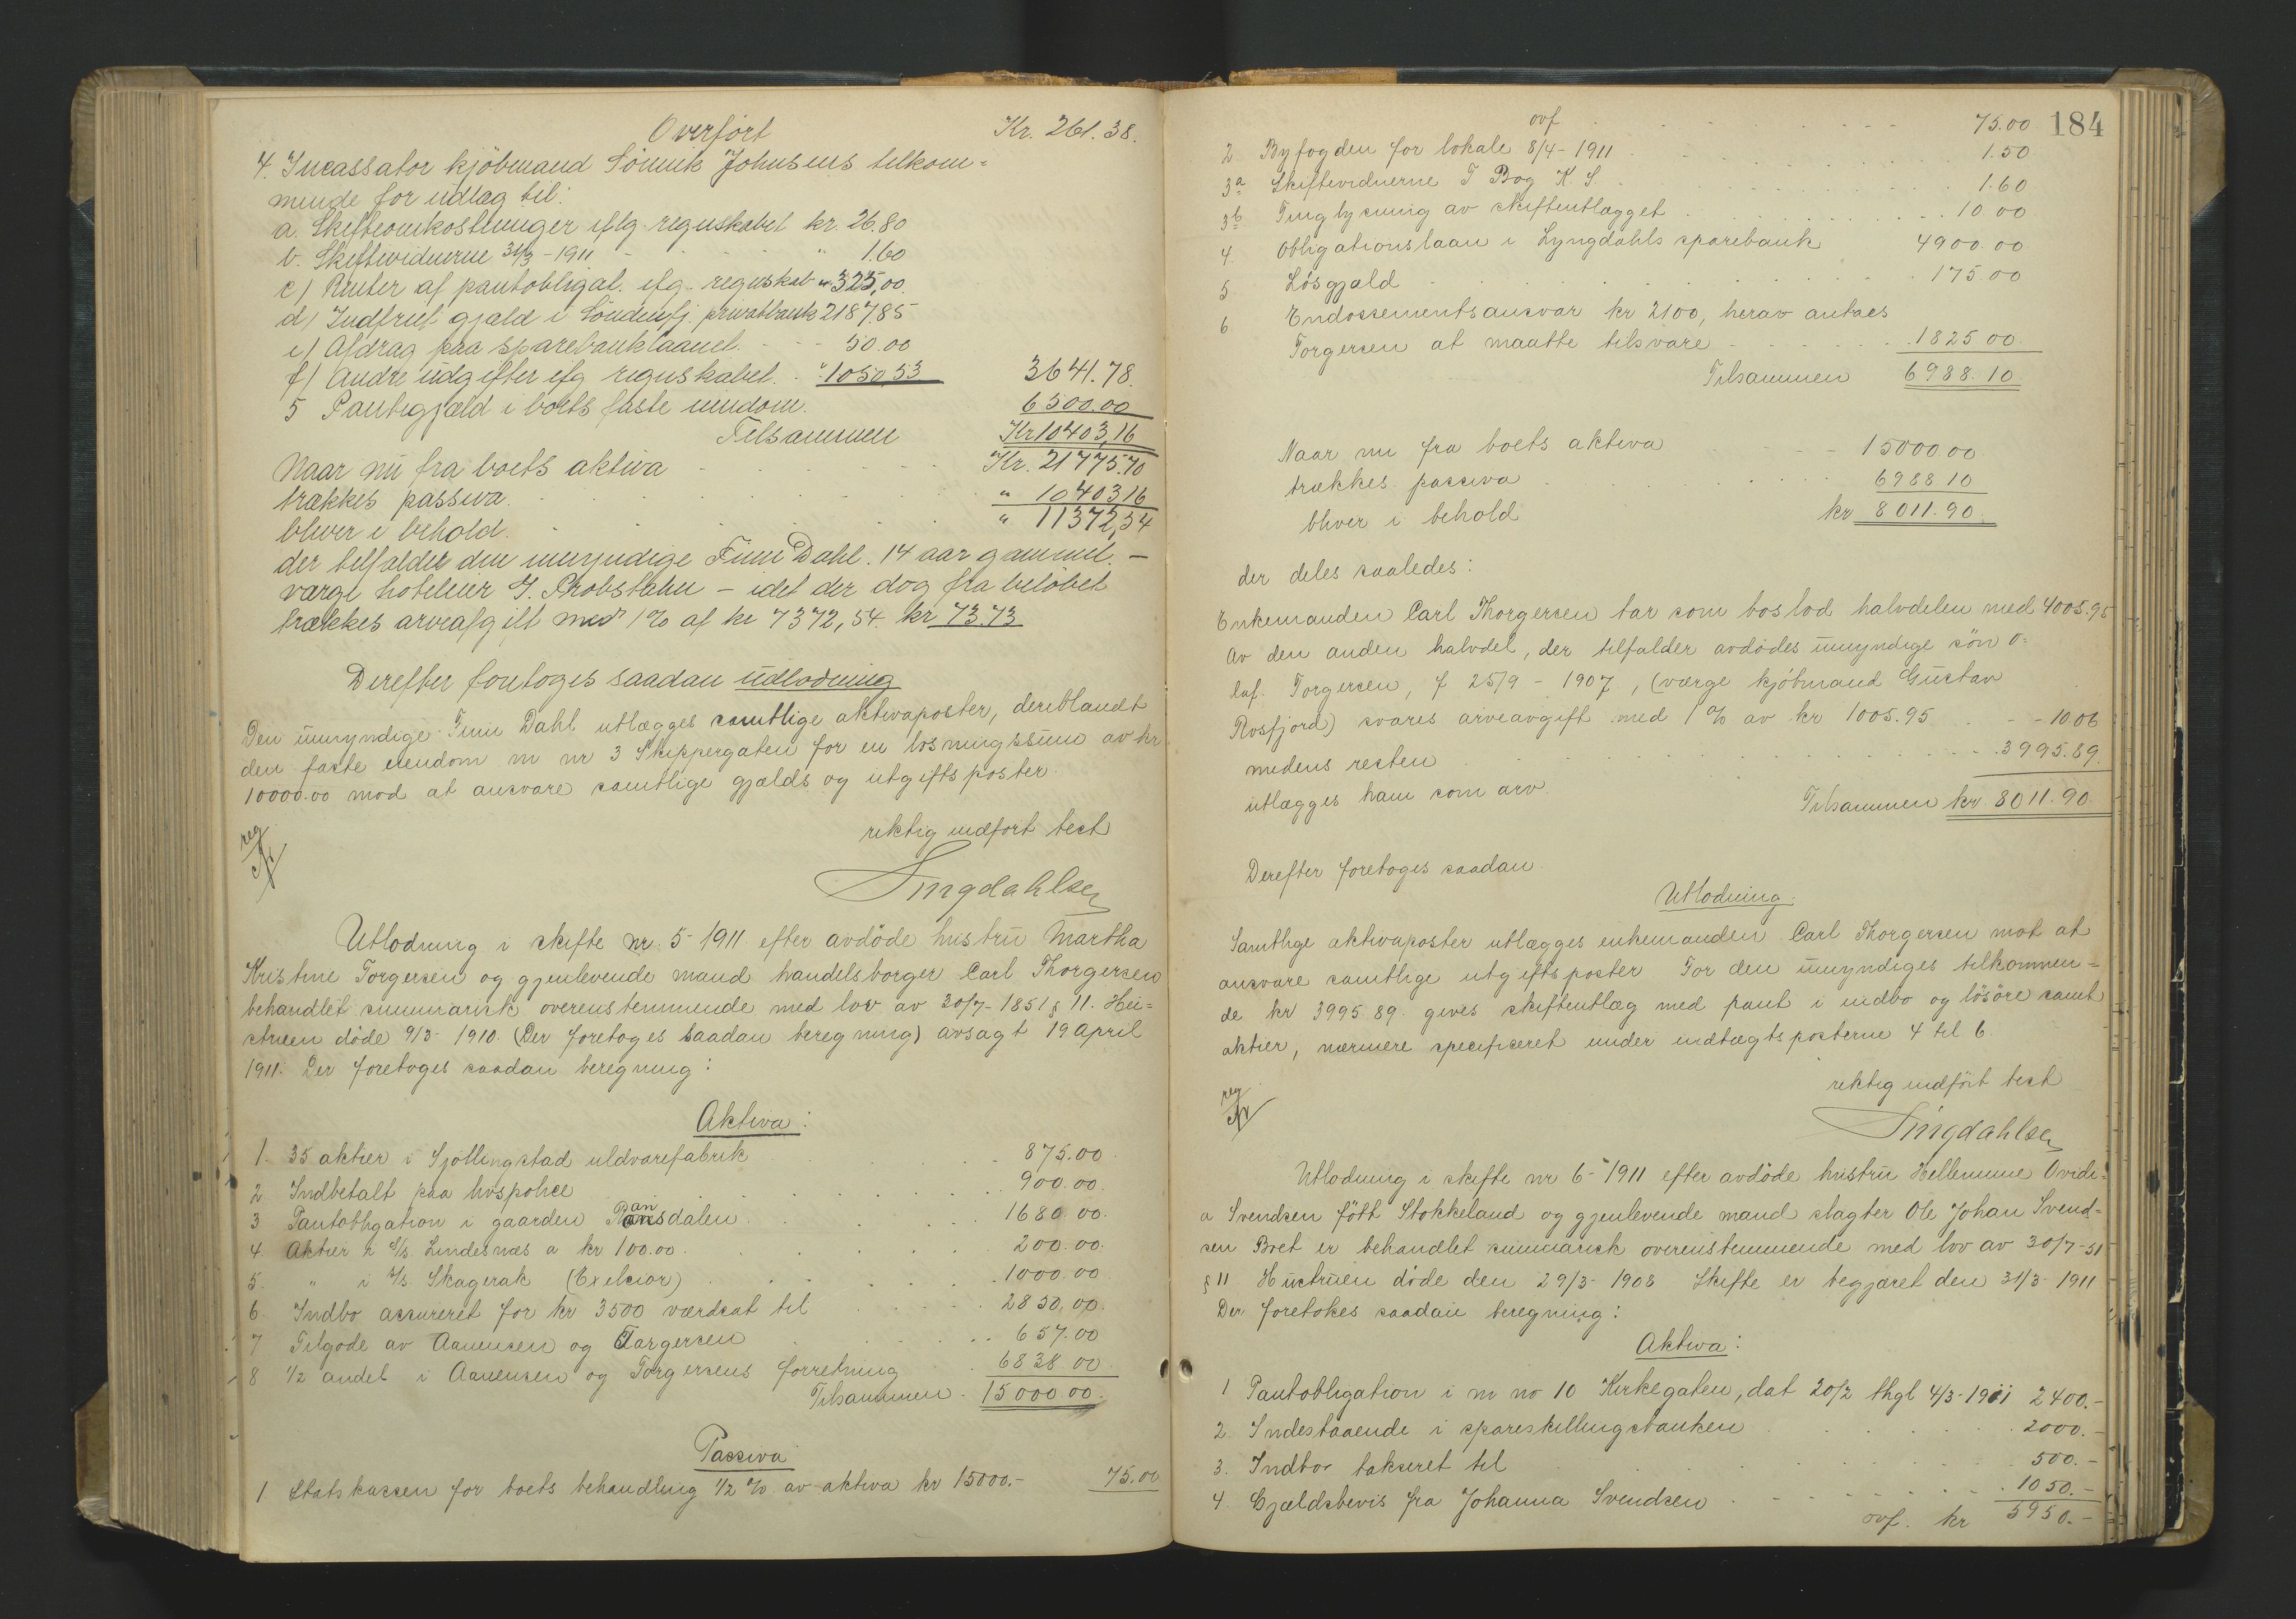 Overført Kr. 261.38.
4. Incassator kjöbmand Sömik Johnsens tilkom-
mende for udlæg til:
a. Skifteomkostninger iflg. regnskabet kr. 26.80
b. Skiftevidnerne 31/3-1911 - - " 1.60
c) Renter af pantobligat. ifg. regnskab " 325,00.
d) Indfriet gjæld i Söndenfj. privatbank 2187.85
e) Afdrag paa sparebanklaanet. - - 50.00
f) Andre udgifter ifg regnskabet. " 1050,53 3641.78.
5 Pantegjæld i boets faste eiendom. 6500.00
Tilsammen Kr 10403,16
Naar nu fra boets aktiva Kr. 21775.70
trækkes passiva. " 10403 16
bliver i behold. " 11372,54
der tilfalder den umyndige Finn Dahl. 14 aar gammel. -
værge hoteleier J. Probstahn - idet der dog fra beløbet
trækkes arveafgift med 1% af kr 7372,54. kr 73.73
Derefter foretoges saadan udlodning
Den umyndige Finn Dahl utlægges samtlige aktivaposter, deriblandt
den faste eiendom m nr 3 Skippergaten for en løsningssum av kr
10000.00 mod at ansvare samtlige gjælds og utgiftsposter.
reg
rektig indført test
Singdahlsen
Utlodning i skifte nr. 5-1911 efter avdöde hustru Martha
Kristine Torgersen og gjenlevende mand handelsborger Carl Thorgersen
behandlet summarisk overenstemmende med lov av 30/7-1851 § 11. Hu-
struen döde 9/3 1910. (Der foretoges saadan beregning) avsagt 19 April
1911. Der foretoges saadan beregning:
Aktiva:
1. 35 aktier i Sjöllingstad uldvarefabrik 875.00.
2 Indbetalt paa livspolice 900.00.
3 Pantobligation i gaarden Ransdalen. an 1680.00.
4. Aktier i D/S Lindesnæs a kr 100.00. 200.00.
5. " i D/S Skagerak (Exelsior) 1000.00
6. Indbo assureret for kr 3500 værdsat til 2850,00.
7 Tilgode av Aanensen og Torgersen 657.00
8 1/2 andel i Aanensen og Torgersens forretning 6838.00
Tilsammen. 15000 00.
Passiva
1 Statskassen for boets behandling 1/2 % av aktiva kr 15000.- 75.00
184
ovf 75.00
2 Byfogden for lokale 8/4-1911 1.50
3a Skiftevidnerne T Bog K S 1.60
3b Tinglysning av skifteutlægget 10 00
4. Obligationslaan i Lyngdahls sparebank 4900.00
5 Lösgjæld 175.00
6. Endossementsansvar kr 2100, herav antaes
Torgersen at maatte tilsvare 1825 00.
Tilsammen 6988.10
Naar nu fra boets aktiva 15000.00
trækkes passiva 6988.10
bliver i behold kr 8011.90
der deles saaledes:
Enkemanden Carl Thorgersen tar som boslod halvdelen med 4005.95
Av den anden halvdel, der tilfalder avdödes umyndige sön O-
laf. Torgersen, f 25/9-1907, (værge kjöbmand Gustav
Rosfjord) svares arveavgift med 1 % av kr 1005.95 - - 10.06
medens resten 3995.89
utlægges ham som arv.
Tilsammen kr 8011.90
Derefter foretoges saadan
Utlodning.
Samtlige aktivaposter utlægges enkemanden Carl Thorgersen mot at
ansvare samtlige utgiftsposter For den umyndiges tilkommen-
de kr 3995 89. gives skifteutlæg med pant i indbo og lösöre samt
aktier, nærmere specificeret under indtægtsposterne 4 til 6.
reg
rektig indfört test
Singdahlsen
Utlodning i skifte nr 6-1911 efter avdöde hustru Hellemine Ovidi-
a Svendsen födt Stokkeland og gjenlevende mand slagter Ole Johan Svend-
sen Boet er behandlet summarisk overenstemmende med lov av 30/7-51
§ 11 Hustruen döde den 29/3-1908 Skifte er begjæret den 31/3-1911
Der foretokes saadan beregning:
Aktiva:
1 Pantobligation i m no 10 Kirkegaten, dat 20/2 thgl 4/3-1911 2400.-
2. Indestaaende i spareskillingsbanken 2000.-
3. Indbo takseret til 500.-
4. Gjældsbevis fra Johanna Svendsen 1050.-
ovf. kr 5950.-